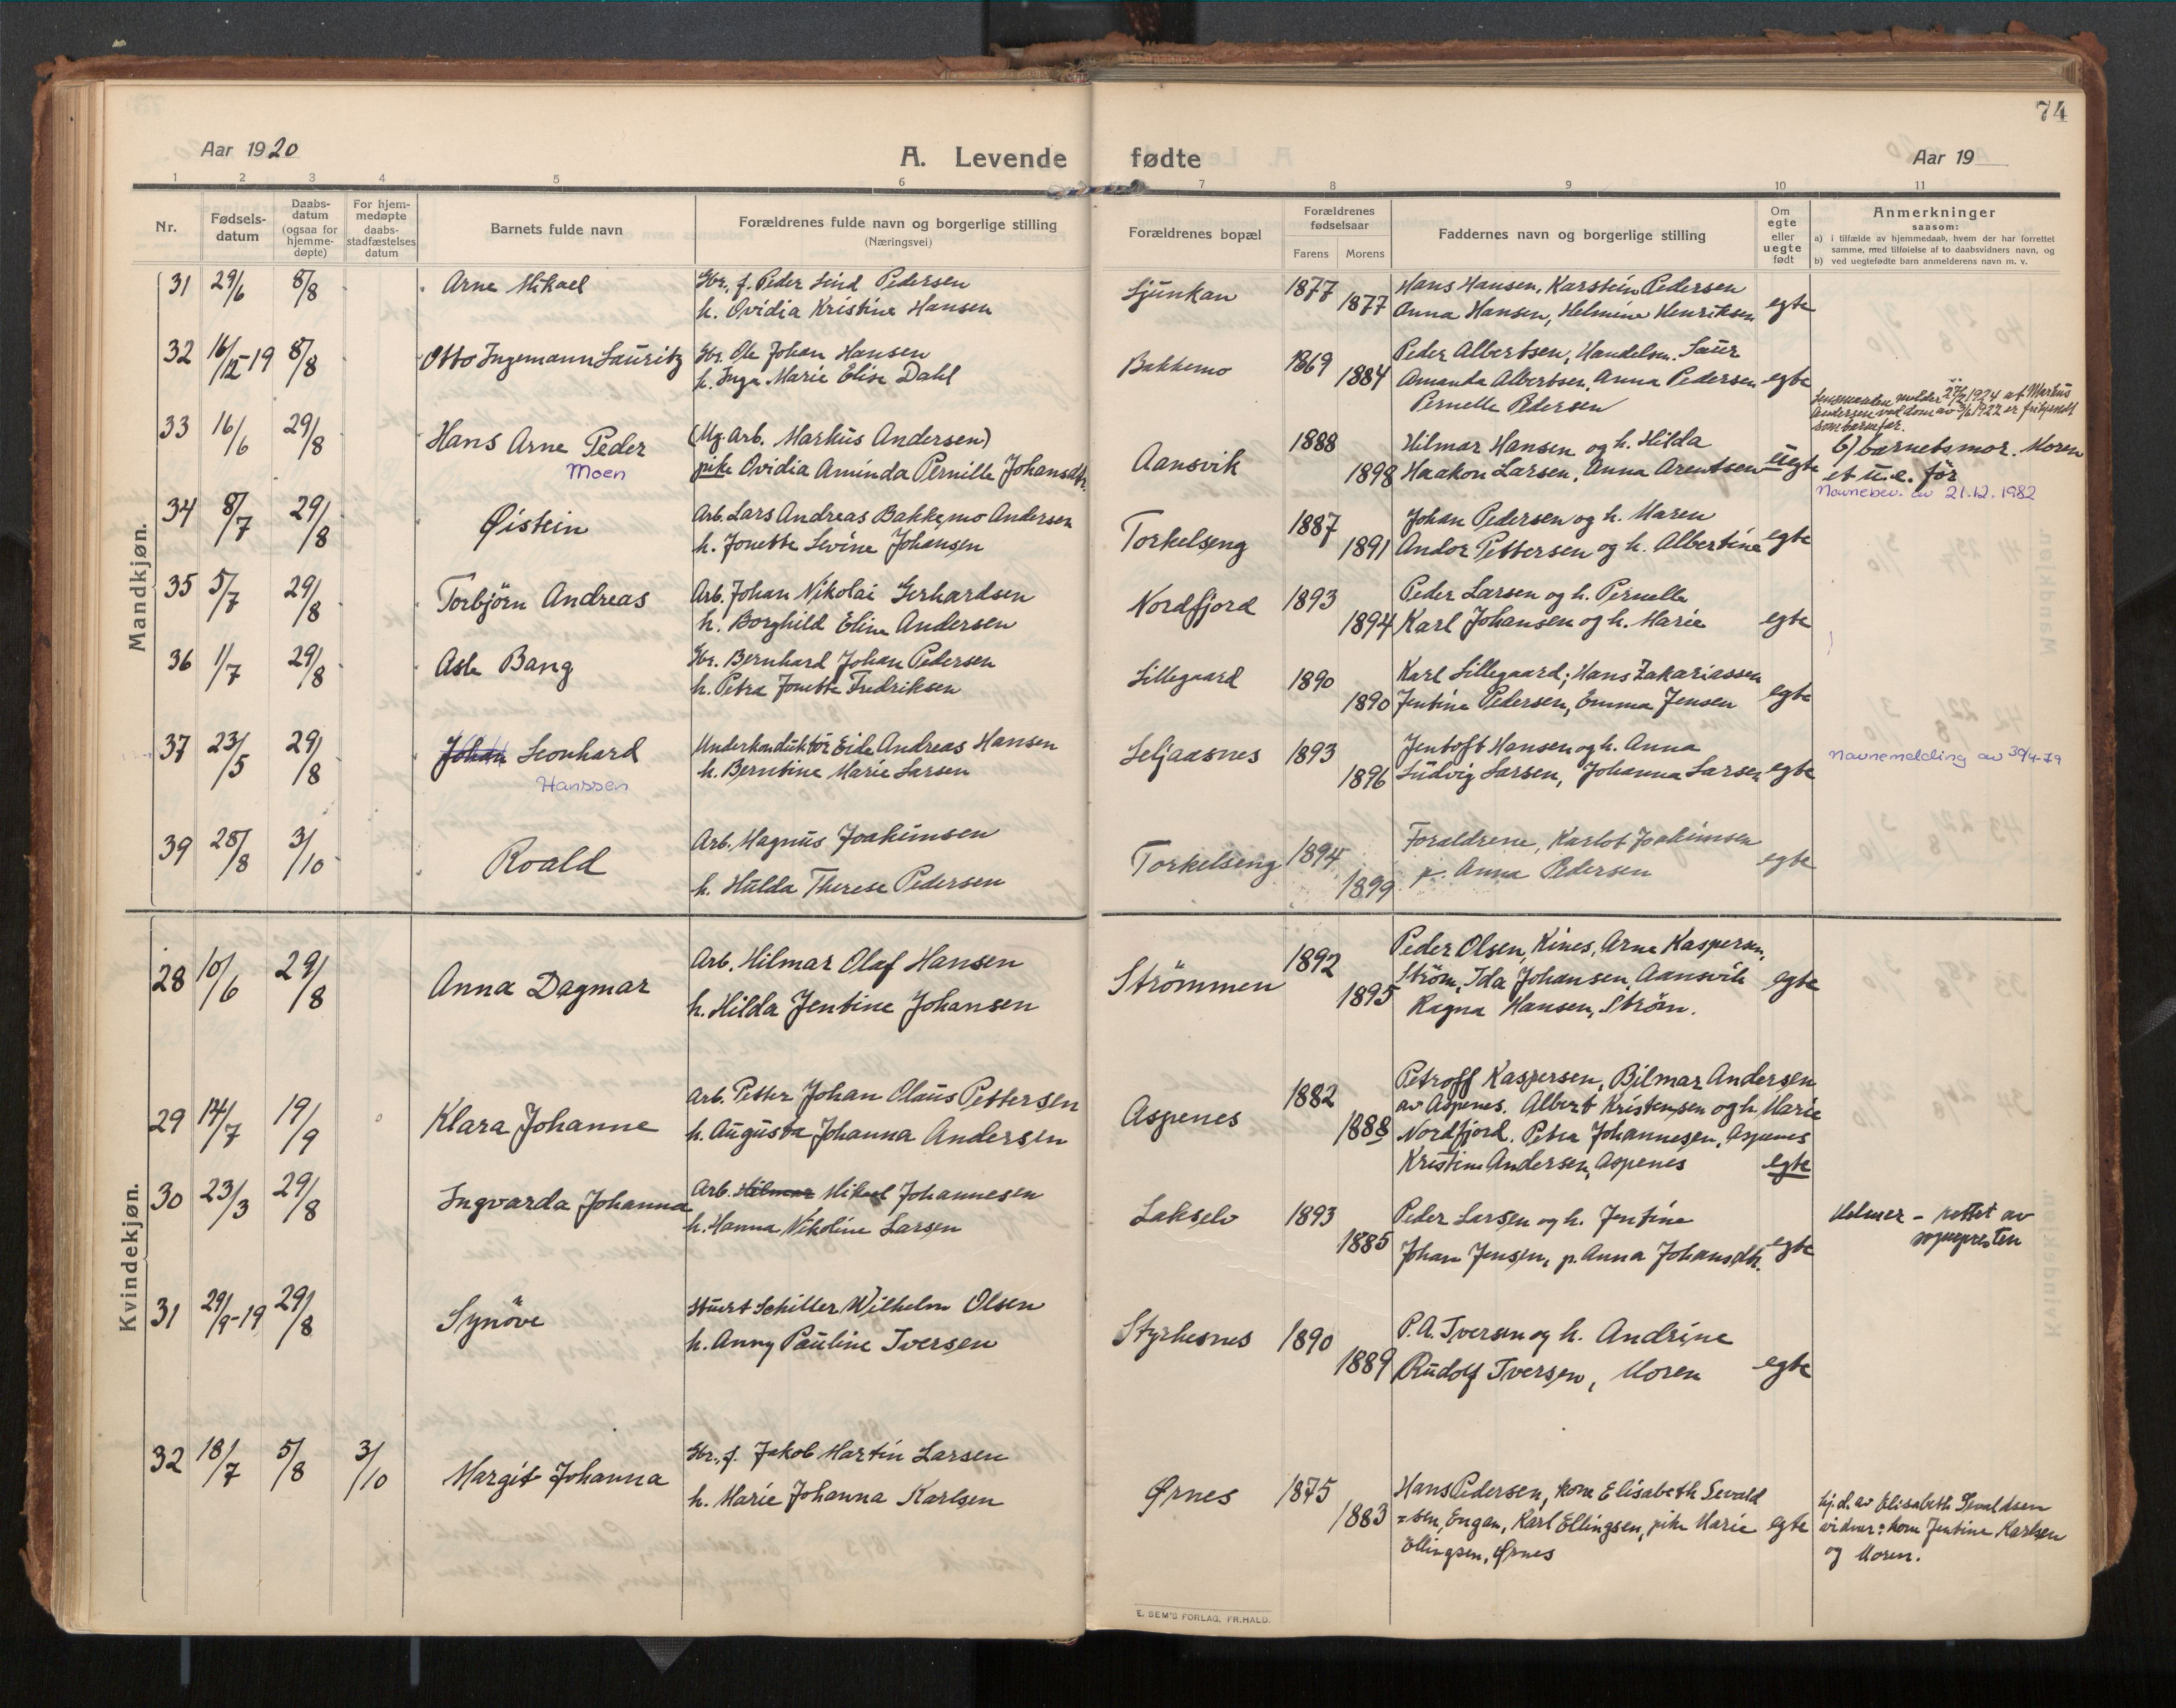 74
Aar 1920
A. Levende fødte
Aar 19
1 2 3 4 5 6 7 8 9 10 11
Nr.
Fødselsdatum
Daabsdatum (ogsaa for hjemmedøpte)
For hjemmedøpte daabsstadfæstelses datum
Barnets fulde navn
Forældrenes fulde navn og borgerlige stilling
(Næringsvei)
Forældrenes bopæl
Forældrenes fødselsaar
Farens Morens
Faddernes navn og borgerlige stilling
Om egte eller uegte født
Anmerkninger
saasom:
a) i tilfælde av hjemmedaab, hvem der har forrettet
samme, med tilføielse af to daabsvidners navn, og
b) ved uegtefødte barn anmelderens navn m. v.
Mandkjøn.
31 29/6 8/8 Arne Mikael
Gbr. f. Peder Lind Pedersen
h. Ovidia Kristine Hansen
Ljünkan 1877 1877
Hans Hansen, Karstein Pedersen
Anna Hansen, Helmine Henriksen egte
32 16/12-19 8/8 Otto Ingemann Lauritz
Gbr. Ole Johan Hansen
h. Inga Marie Elise Dahl
Bakkemo 1869 1884
Peder Albertsen, Handelsm. Saur
Amanda Albertsen, Anna Pedersen egte
Pernelle Pedersen
33 16/6 29/8 Hans Arne Peder
Moen
(Ug. Arb. Markus Andersen)
pike Ovidia Aminda Pernille Johansdtr.
Aansvik 1888 1898
Hilmar Hansen og h. Hilda
Haakon Larsen, Anna Arentsen uegte
Lensmanden melder 27/2 1924 at Markus
Andersen ved dom av 3/6 1922 er frikjendt
som barnefar.
b) barnets mor. Moren
et u.e. før
Navnebev. av 21.12.1982
34 8/7 29/8 Øistein
Arb. Lars Andreas Bakkemo Andersen
h. Jonette Levine Johansen
Torkelseng 1887 1891
Johan Pedersen og h. Maren
Andor Pettersen og h. Albertine egte
35 5/7 29/8 Torbjörn Andreas
Arb. Johan Nikolai Gerhardsen
h. Borghild Eline Andersen
Nordfjord 1893 1894
Peder Larsen og h. Pernelle
Karl Johansen og h. Marie egte
36 1/7 29/8 Asle Bang
Gbr. Bernhard Johan Pedersen
h. Petra Jonette Fredriksen
Lillegaard 1890 1890
Karl Lillegaard; Hans Zakariassen
Jentine Pedersen, Emma Jensen egte
37 23/5 29/8 Johan Leonhard
Hanssen
Underkonduktör Eide Andreas Hansen
h. Berntine Marie Larsen
Seljaasnes 1893 1896
Jentoft Hansen og h. Anna
Ludvig Larsen, Johanna Larsen egte
Navnemelding av 30/4-79
39 28/8 3/10 Roald
Arb. Magnus Joakimsen
h. Hulda Therese Pedersen
Torkelseng 1894 1899
Foraldrene, Karlot Joakimsen
p. Anna Pedersen egte
Kvindekjøn.
28 10/6 29/8 Anna Dagmar
Arb. Hilmar Olaf Hansen
h. Hilda Jentine Johansen
Strömmen 1892 1895
Peder Olsen, Kines, Arne Kaspersen,
Ström, Ida Johansen, Aansvik egte
Ragna Hansen, Ström.
29 14/7 19/9 Klara Johanne
Arb. Petter Johan Olaus Pettersen
h. Augusta Johanna Andersen
Aspenes 1882 1888
Petroff Kaspersen, Bilmar Andersen
av Aspenes. Albert Kristensen og h. Marie
Nordfjord. Petra Johannesen, Aspenes
Kristine Andersen, Aspenes egte
30 23/3 29/8 Ingvarda Johanna
Arb. Hilmar Mikael Johannesen
h. Hanna Nikoline Larsen
Lakselv 1893 1885
Peder Larsen og h. Jentine
Johan Jensen, p. Anna Johansdtr. egte
Helmer - rettet av
sognepresten
31 29/9-19 29/8 Synöve
Stuert Schiller Wilhelm Olsen
h. Anny Pauline Iversen
Styrkesnes 1890 1889
P. A. Iversen og h. Andrine
Rudolf Iversen, Moren egte
32 18/7 5/8 3/10 Margit Johanna
Gbr. f. Jakob Martin Larsen
h. Marie Johanna Karlsen
Ørnes 1875 1883
Hans Pedersen, kone Elisabeth Sevald
=sen, Engan, Karl Ellingsen, pike Marie egte
Ellingsen, Ørnes
hj. d. av Elisabeth Sevaldsen
vidner: kone Jentine Karlsen
og Moren.
E. SEM'S FORLAG, FR.HALD.